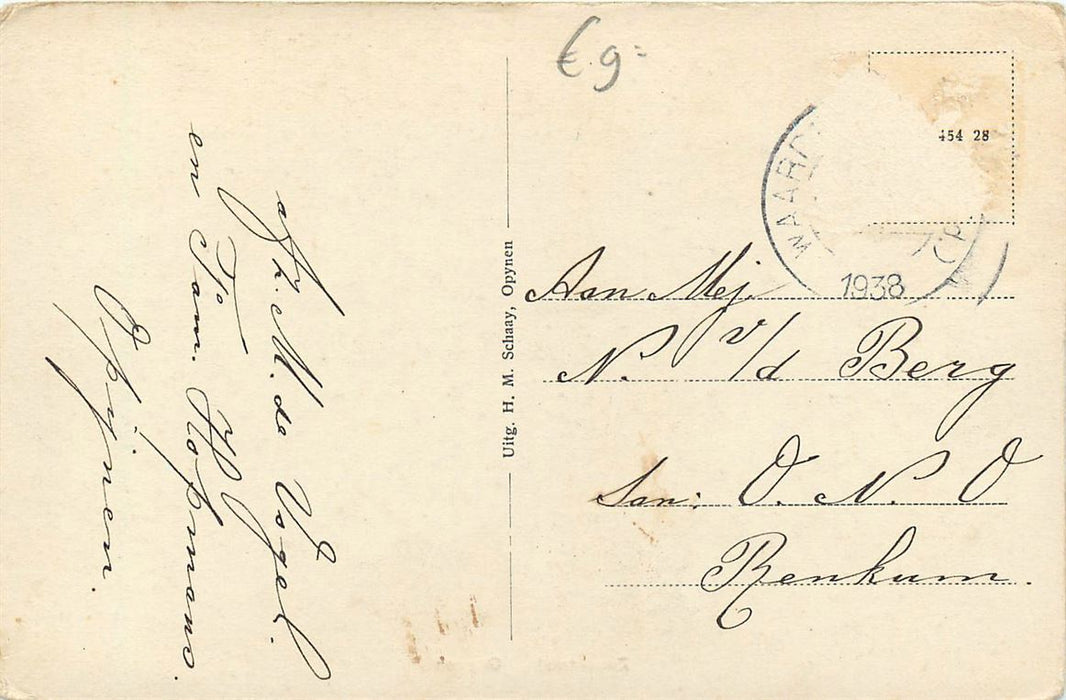 € 9=
454 28
WAARD
1938
Aan Mej.
N. v/d Berg
San: O. N. O
Renkum.
Uitg. H. M. Schaay, Opynen
M. de Vogel.
en Fam. Hofmans.
Opijnen.